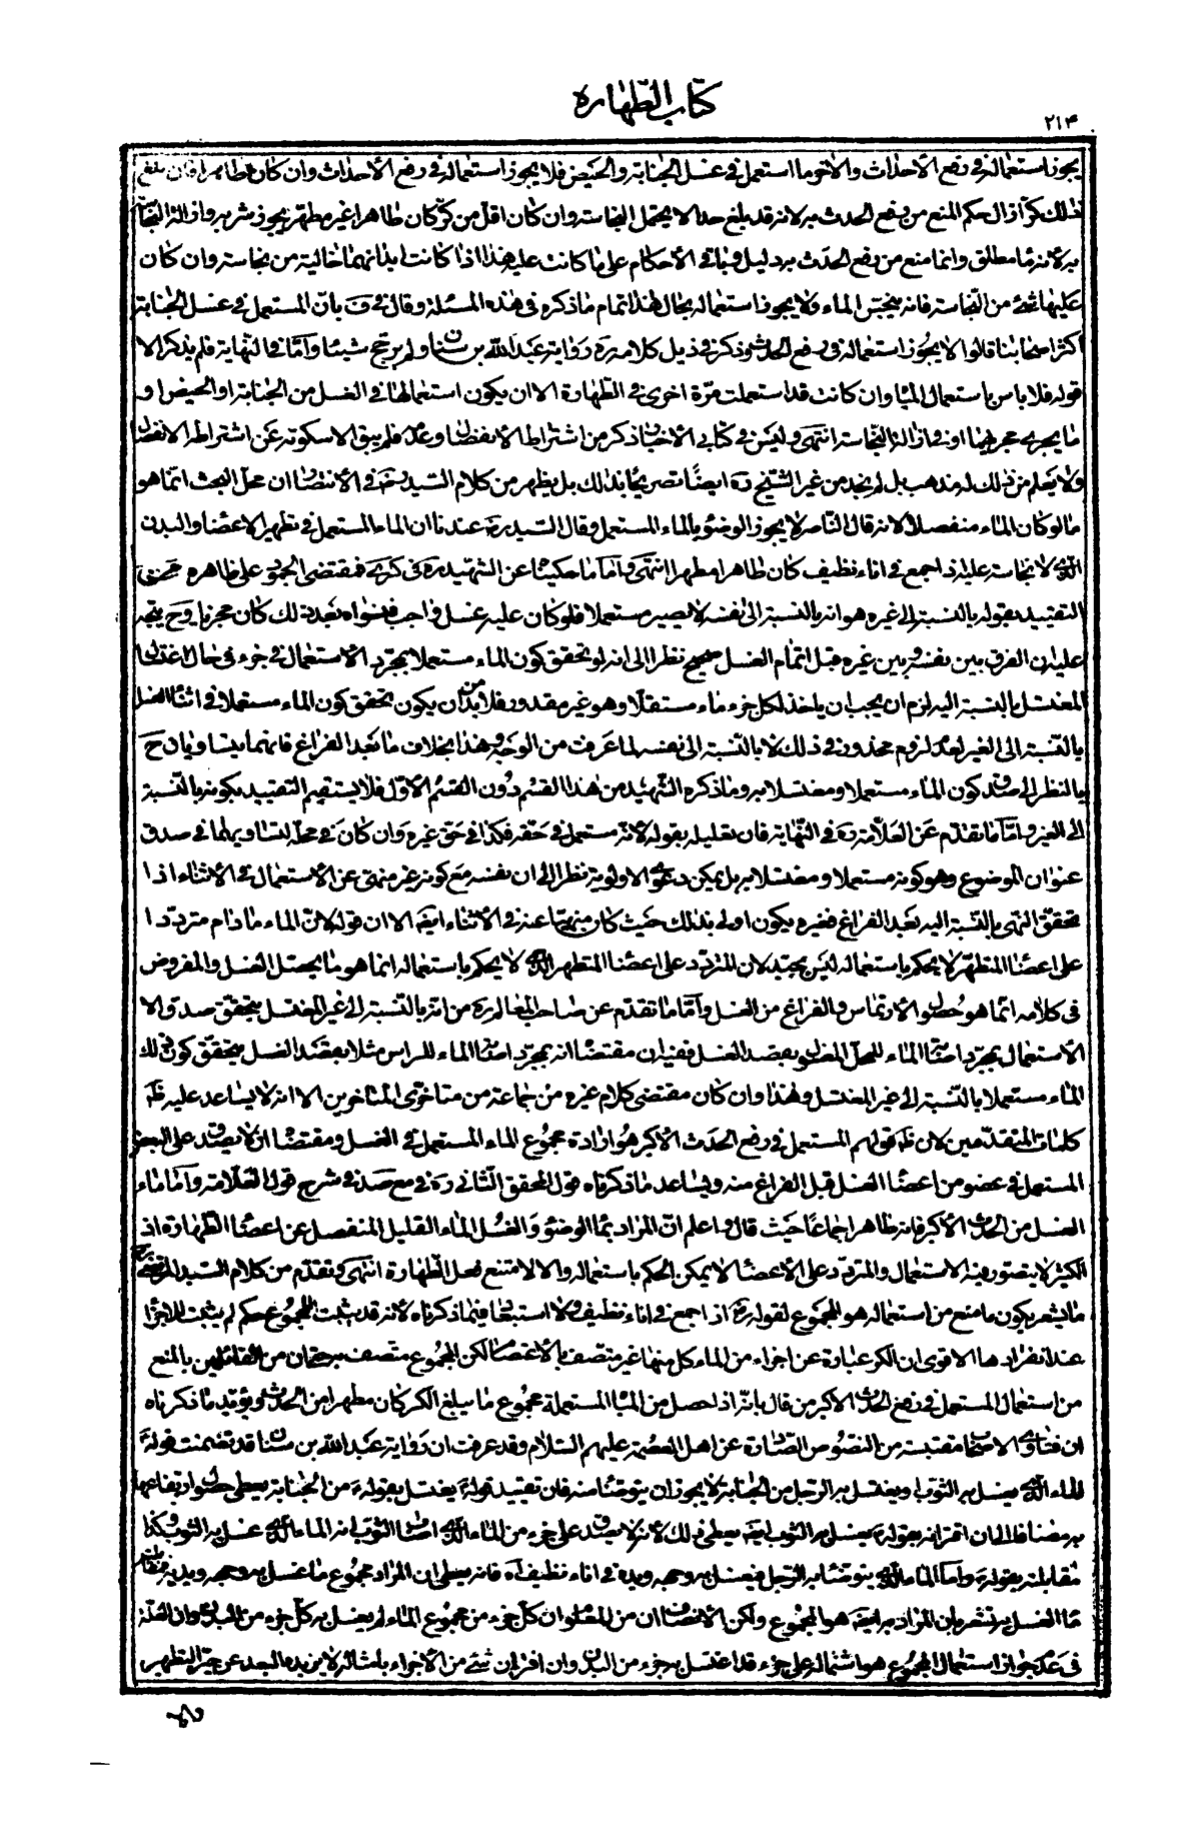 كتاب الطهارة
٢١٣
يجوز استعماله في رفع الأحداث والاخر ما استعمل في غسل الجنابة والحيض فلا يجوز استعماله في رفع الأحداث وان كان طاهرا فان بلغ
ذلك كرّا زال حكم المنع من رفع الحدث به لانه قد بلغ حدا لا يحتمل النجاسة وان كان اقلّ من كرّ كان طاهرا غير مطهر يجوز شربه وازالة النجاسة
به لأنه ماء مطلق وانما منع من رفع الحدث به دليل وباقي الأحكام على ما كانت عليه هذا اذا كانت ابدانهما خالية من نجاسة وان كان
عليها شئ من النّجاسة فانه ينجّس الماء ولا يجوز استعماله بحال هذا تمام ما ذكره في هذه المسئلة وقال في ف بانّ المستعمل في غسل الجنابة
اكثر اصحابنا قالوا لا يجوز استعماله في رفع الحدث وذكر في ذيل كلامه ره رواية عبد اللّه بن سنان ولم يرجّح شيئا وامّا في النهاية فلم يذكر الا
قوله فلا باس باستعمال المياه وان كانت قد استعملت مرّة اخرى في الطهارة الا ان يكون استعمالها في الغسل من الجنابة او الحيض او
ما يجرى مجريهما او في ازالة النّجاسة انتهى وليس في كتابي الأخبار ذكر من اشتراط الأنفصال وعدمه فلم يبق الا سكوته عن اشتراط الانفصال
ولا يعلم من ذلك له مذهب بل لم نجد من غير الشّيخ ره ايضا تصريحا بذلك بل يظهر من كلام السّيد ره في الأنتصار ان محلّ البحث انّما هو
ما لو كان الماء منفصلا لانه قال الناصر لا يجوز الوضوء بالماء المستعمل وقال السّيد ره عندنا ان الماء المستعمل في تطهير الاعضاء والبدن
الّذي لا نجاسة عليه اذا جمع في اناء نظيف كان طاهرا مطهرا انتهى وامّا ما حكيناه عن الشّهيد ره في كرى فمقتضى الجمود على ظاهره حيث
التقييد بقوله بالنسبة الى غيره هو انه بالنسبة الى نفسه لا يصير مستعملا فلو كان عليه غسل واجب فنواه بعد ذلك كان مجزيا وح يتجه
عليه ان الفرق بين نفسه وبين غيره قبل اتمام الغسل صحيح نظرا الى انه لو تحقق كون الماء مستعملا بمجرّد الأستعمال في جزء في حال اغتسال
المغتسل بالنسبة اليه لزم ان يجب ان ياخذ لكل جزء ماء مستقلا وهو غير مقدور فلا بدّ من ان يكون تحقق كون الماء مستعملا في اثناء الغسل
بالنّسبة الى الغير لعدم لزوم محذور في ذلك لا بالنّسبة الى نفسه لما عرفت من الوجه وهذا بخلاف ما بعد الفراغ فانهما يتساويان ح
بالنظر الى صدق كون الماء مستعملا ومغتسلا به وما ذكره الشّهيد من هذا القسم دون القسم الأوّل فلا يستقيم التقييد بكونه بالنّسبة
الى الغير وامّا ما تقدّم عن العلّامة ره في النّهاية فان تعليله بقوله لأنّه مستعمل في حقه فكذا في حق غيره وان كان في محلّه لتساويهما في صدق
عنوان الموضوع وهو كونه مستعملا ومغتسلا به بل يمكن دعوى الاولوية نظرا الى ان نفسه مع كونه غير منهى عن الأستعمال في الأثناء اذا
تحقق النهى بالنّسبة اليه بعد الفراغ فغيره يكون اولى بذلك حيث كان منهيّا عنه في الأثناء ايضا الا ان قوله لانّ الماء ما دام متردّدا
على اعضاء المتطهّر لا يحكم باستعماله ليس بجيّد لان المتردّد على اعضاء المتطهر الذي لا يحكم باستعماله انما هو ما يحصل الغسل والمفروض
في كلامه انّما هو حصول الأرتماس والفراغ من الغسل وأمّا ما تقدّم عن صاحب المعالم ره من انّه بالنّسبة الى غير المغتسل يتحقق صدق الا
الأستعمال بمجرّد اصابة الماء للمحلّ المغسول بقصد الغسل ففيه ان مقتضاه انه بمجرّد اصابة الماء للراس مثلا بقصد الغسل يتحقق كون ذلك
الماء مستعملا بالنّسبة الى غير المغتسل وهذا وان كان مقتضى كلام غيره من جماعة من متاخّرى المتاخرين الا انه لا يساعد عليه ظ
كلمات المتقدّمين لان ظ قولهم المستعمل في رفع الحدث الأكبر هو ارادة مجموع الماء المستعمل في الغسل ومقتضاه ان لا يصدق على البعض
المستعمل في عضو من اعضاء الغسل قبل الفراغ منه ويساعد ما ذكرناه قول المحقق الثّاني ره في مع صد في شرح قول العلّامة وأمّا ماء
الغسل من الحدث الأكبر فانه طاهر اجماعا حيث قال واعلم انّ المراد بماء الوضوء والغسل الماء القليل المنفصل عن اعضاء الطهارة اذ
الكثير لا يتصور فيه الاستعمال والمتردّد على الأعضاء لا يمكن الحكم باستعماله والا لامتنع فعل الطّهارة انتهى وتقدّم من كلام السّيد المرتضى ره
ما يشعر بكون ما منع من استعماله هو المجموع لقوله ره اذا جمع في اناء نظيف ولا استبعاد فيما ذكرناه لانه قد يثبت للمجموع حكم لم يثبت للاجزاء
عند انفرادها الا قوى ان الكر عبارة عن اجزاء من الماء كل منها غير متصف بالاعتصام لكن المجموع متصف به حتى ان من القائلين بالمنع
من استعمال المستعمل في رفع الحدث الأكبر من قال بانّه اذا حصل من المياه المستعملة مجموع ما يبلغ الكر كان مطهرا من الحدث ويؤيّد ما ذكرناه
ان فتاوى الأصحاب مقتبسة من النّصوص الصّادرة عن اهل العصمة عليهم السّلام وقد عرفت ان رواية عبد اللّه بن سنان قد تضمنت قوله ع
الماء الّذي يغسل به الثّوب او يغتسل به الرّجل من الجنابة لا يجوز ان يتوضّا منه فان تقييد قوله ع يغتسل بقوله ع من الجنابة يعطى حصول ارتفاعها
به مضافا الى ان اقترانه بقوله ع يغسل به الثوب ايضا يعطى ذلك لأنه لا يصدق على جزء من الماء الّذي اصاب الثّوب انه الماء الذي غسل به الثّوب وكذا
مقابلته بقوله ع وامّا الماء الّذي يتوضّا به الرّجل فيغسل به وجهه ويده في اناء نظيف آه فانه يعطى ان المراد مجموع ما غسل به وجهه ويديه
ماء الغسل به تشعر بان المراد به ايضا هو المجموع ولكن الأنصاف ان من المعلوم ان كل جزء من مجموع الماء لم يغسل به كلّ جزء من البدن وان العلّة
في عدم جواز استعمال المجموع هو اشتماله على جزء قد اغتسل به جزء من البدن وان اقتران شئ من الأجزاء بامثاله لا يزيده البعد عن حيّز التطهير